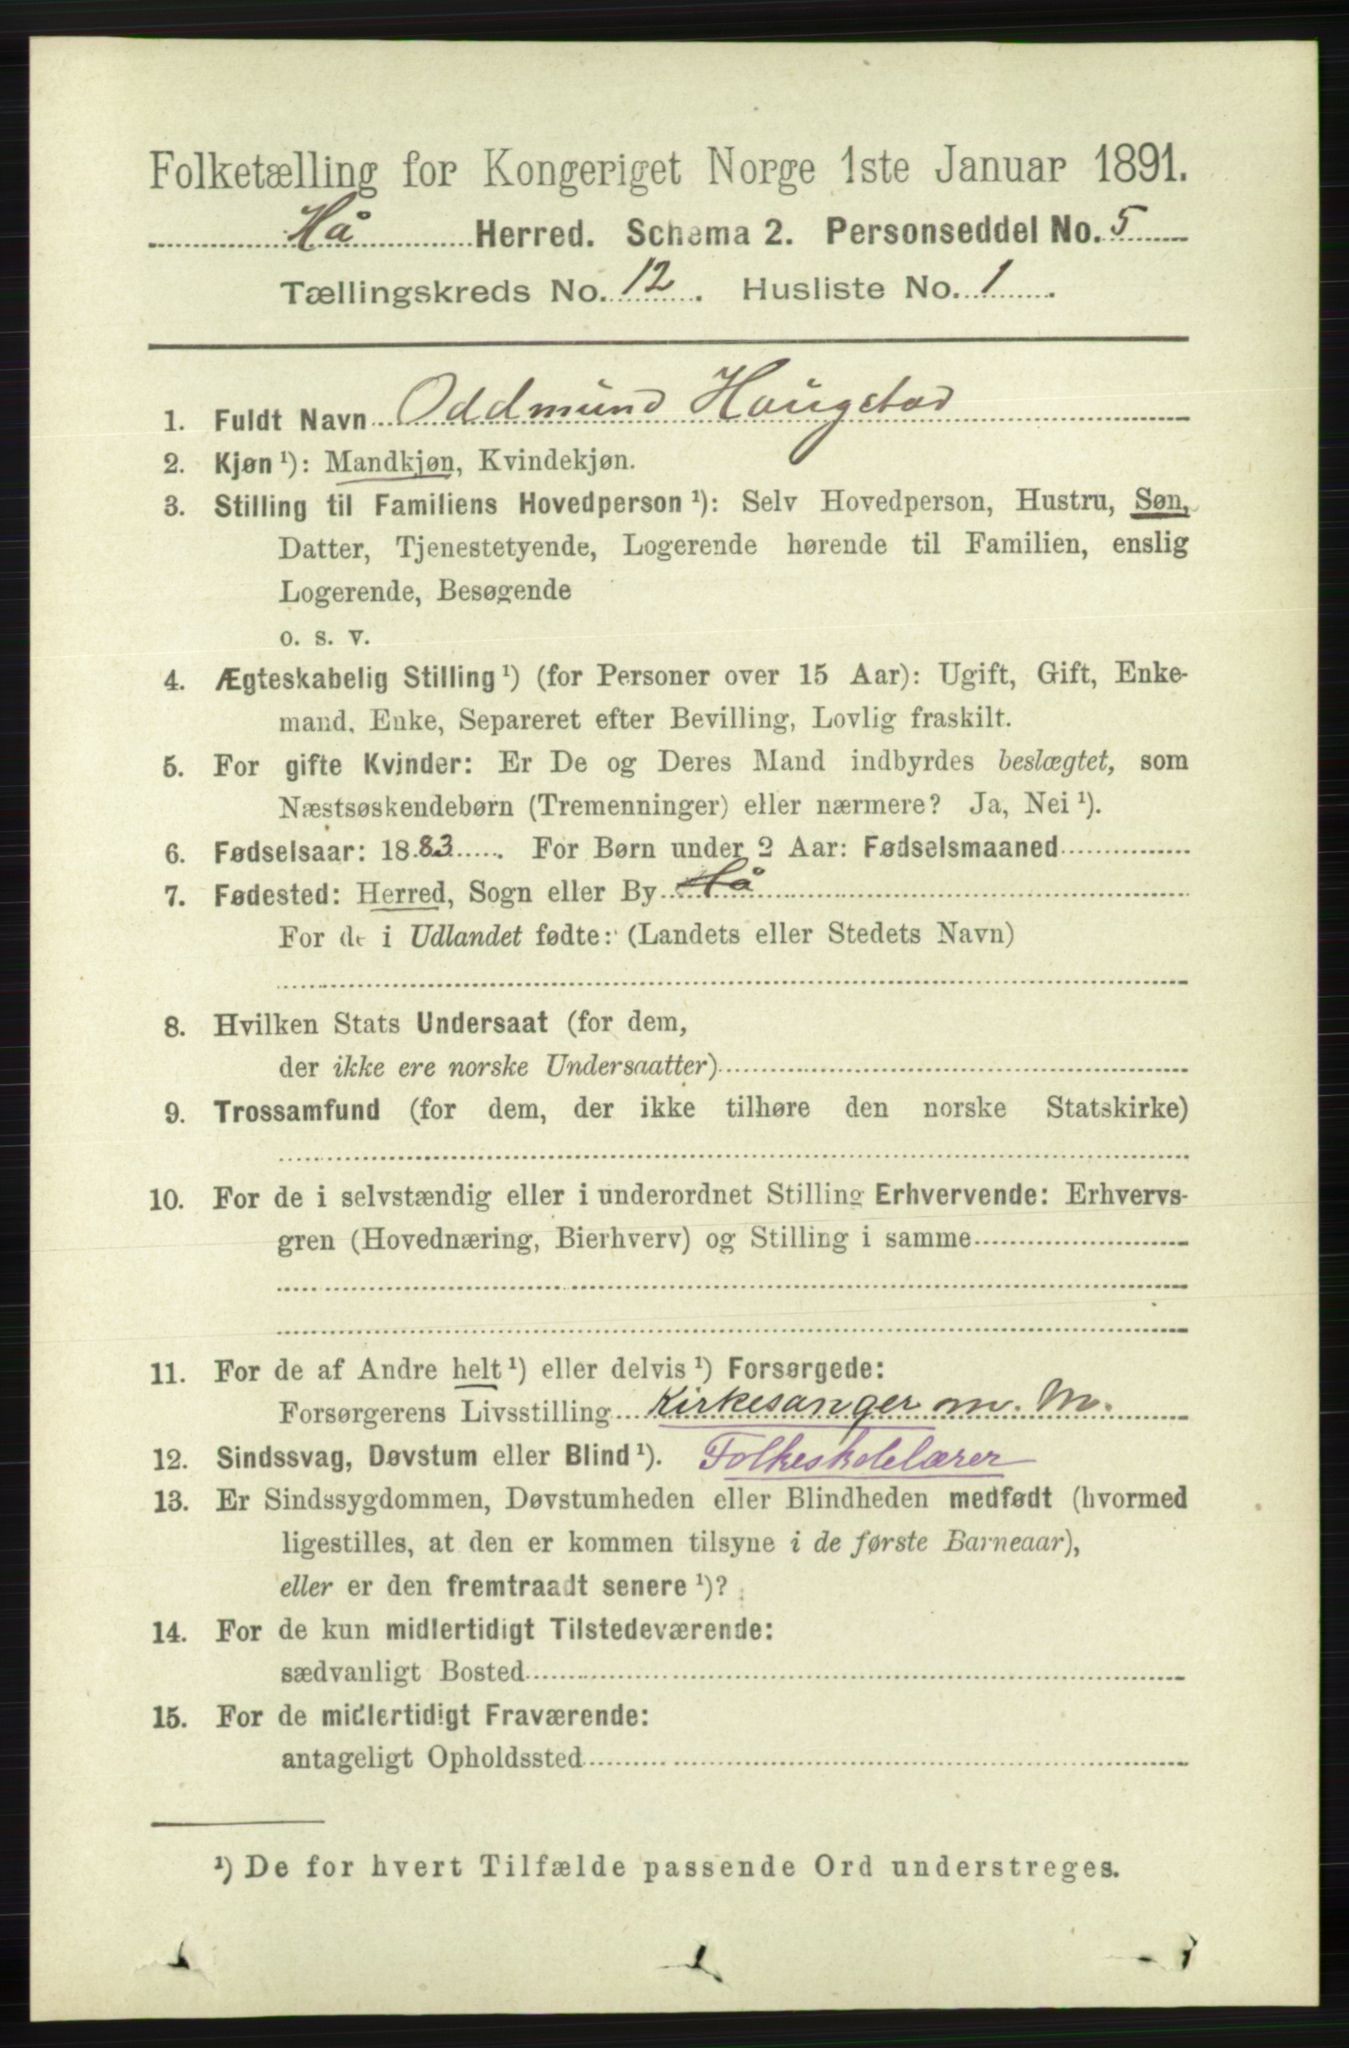 Folketælling for Kongeriget Norge 1ste Januar 1891.
Hå Herred. Schema 2. Personseddel No. 5
Tællingskreds No. 12. Husliste No. 1.
1. Fuldt Navn Oddmund Haugstad
2. Kjøn ¹): Mandkjøn, Kvindekjøn.
3. Stilling til Familiens Hovedperson ¹): Selv Hovedperson, Hustru, Søn,
Datter, Tjenestetyende, Logerende hørende til Familien, enslig
Logerende, Besøgende
o. s. v.
4. Ægteskabelig Stilling ¹) (for Personer over 15 Aar): Ugift, Gift, Enke-
mand, Enke, Separeret efter Bevilling, Lovlig fraskilt.
5. For gifte Kvinder: Er De og Deres Mand indbyrdes beslægtet, som
Næstsøskendebørn (Tremenninger) eller nærmere? Ja, Nei ¹).
6. Fødselsaar: 1883. For Børn under 2 Aar: Fødselsmaaned
7. Fødested: Herred, Sogn eller By Hå
For de i Udlandet fødte: (Landets eller Stedets Navn)
8. Hvilken Stats Undersaat (for dem,
der ikke ere norske Undersaatter)
9. Trossamfund (for dem, der ikke tilhøre den norske Statskirke)
10. For de i selvstændig eller i underordnet Stilling Erhvervende: Erhvervs-
gren (Hovednæring, Bierhverv) og Stilling i samme
11. For de af Andre helt ¹) eller delvis ¹) Forsørgede:
Forsørgerens Livsstilling Kirkesanger m. M.
12. Sindssvag, Døvstum eller Blind ¹). Folkeskolelærer
13. Er Sindssygdommen, Døvstumheden eller Blindheden medfødt (hvormed
ligestilles, at den er kommen tilsyne i de første Barneaar),
eller er den fremtraadt senere ¹)?
14. For de kun midlertidigt Tilstedeværende:
sædvanligt Bosted
15. For de midlertidigt Fraværende:
antageligt Opholdssted
¹) De for hvert Tilfælde passende Ord understreges.